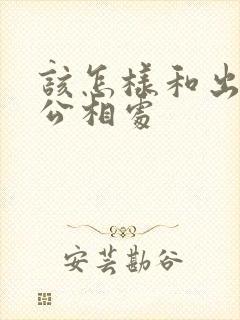 該怎樣和出
公相處
安芸勘谷